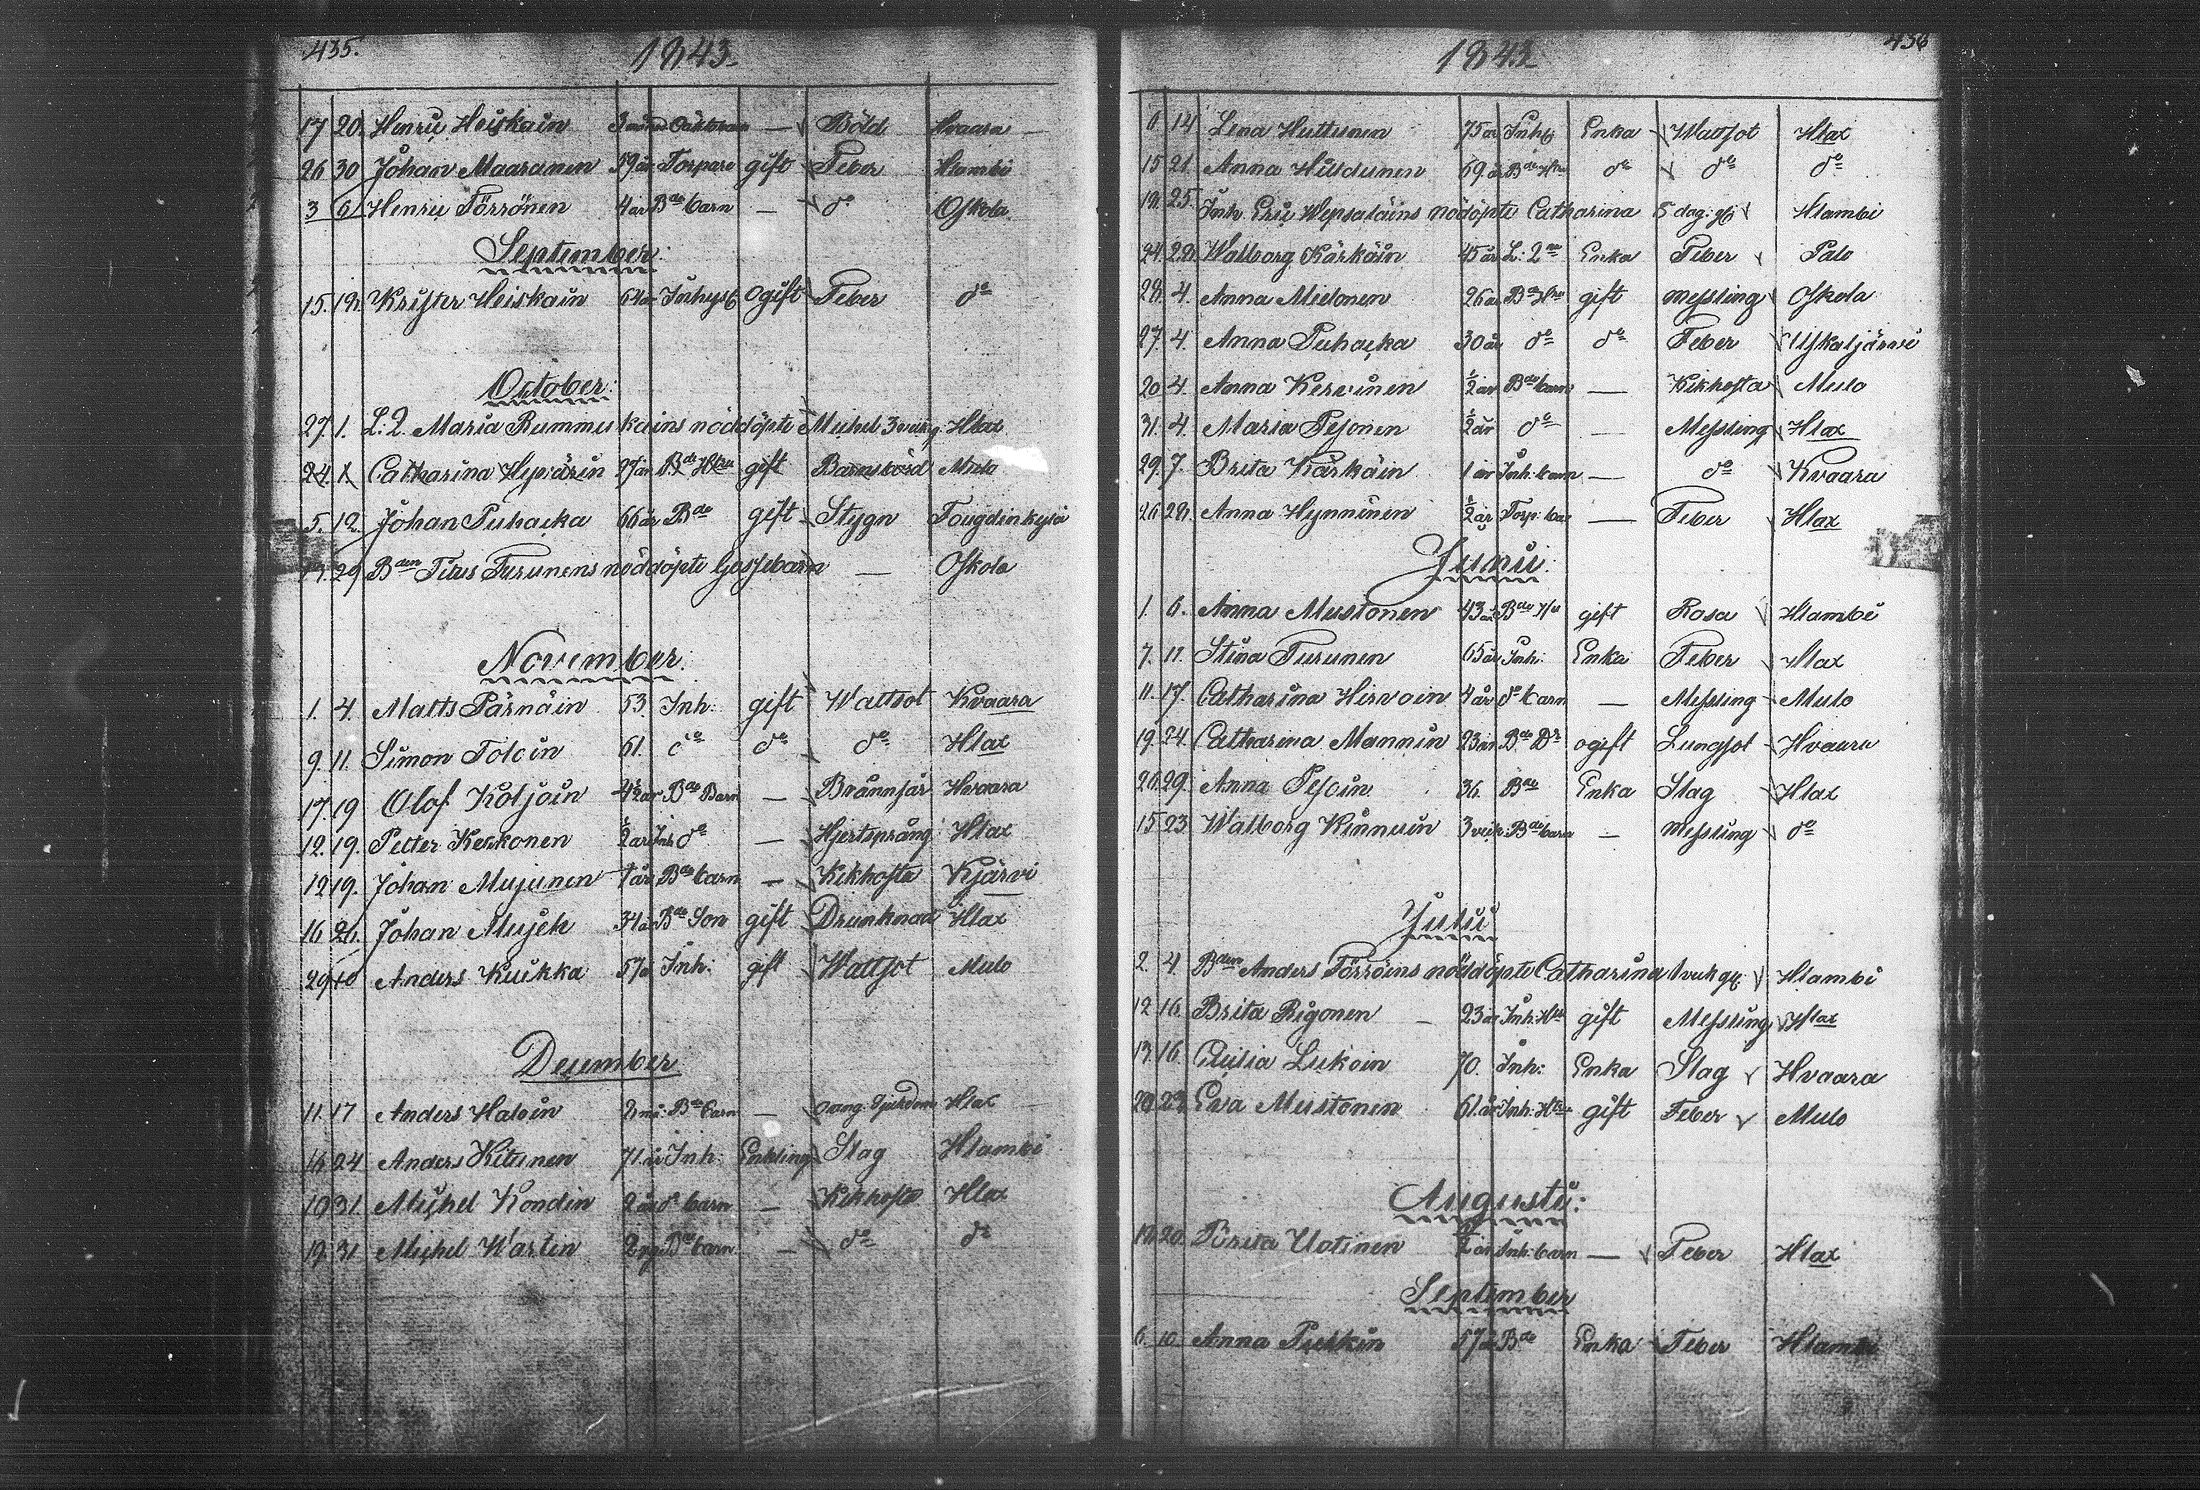 435.
1843.
17 20. Henric Heiskain 3 — Böld Hvaara —
26 30 Johan Maaranen 59 år Torpare gift Feber Hlambi
3 6 Henric Törrönen 4 år Bde barn — do Oskola
September:
15. 18. Krister Heiskain 64 år Inhys Ogift Feber do
October:
27. 1. L: 2. Maria Rummukains nöddöpte Michel 3 veck: g. Hlax
24. 1. Catharina Hyvärin 27 år Bde Hstru gift Barnsbörd Mulo
5. 12. Johan Puhacka 66 år Bde gift Stygn Tougdinkylä
29. Bden Titus Turunens nöddöpte Gossebarn — Oskola
November:
1. 4. Matts Pärnäin 53. Inh: gift Wattsot Kvaara
9. 11. Simon Toloin 61. do do do Hlax
17. 19 Olof Koljoin 4½ år Bde Barn — Brännsår Hvaara
12. 19. Petter Kerkonen ½ år Inh do — Hjertsprång Hlax
12 19. Johan Mujunen 1 år Bde barn — Kikhosta Kjärvi
16 26. Johan Mujek 34 år Bde Son gift Drunknad Hlax
29 10 Anders Kukka 57 å Inh: gift Wattsot Mulo
December
11. 17 Anders Haloin 2 må: Bde Barn — Hlax
16 24 Anders Kitunen 71 år Inh: Enkling Slag Hlambi
10 31. Michel Kondin 2 år do barn — Kikhosta Hlax
19. 31. Michel Wartin 2 Bde barn — do do
436
1843.
6 14 Lena Huttunen 75 år Inh Enka Wattsot Hlax
15 21. Anna Hildunen 69 år Bde Hstru do do do
18. 25. Inh. Eric Wepsaläins nödöpte Catharina 5 dag: gl: Hlambi
24. 28. Walborg Kärkäin 45 år L: 2ns Enka Feber Palo
28. 4. Anna Mielonen 26 år Bde Hstru gift messling Oskola
27. 4. Anna Puhacka 30 år do do Feber Uskaljärvi
20 4. Anna Kervinen ½ år Bde barn — Kikhosta Mulo
31. 4. Maria Pesonen ½ år do — Messling Hlax
29. 7. Brita Kärkäin 1 år Inh: barn — do Kvaara
26 28. Anna Hynninen ½ år Torp: bar — Feber Hlax
Junii:
1. 6. Anna Mustonen 43 år Bde H gift Rosa Hlambi
7. 11. Stina Turunen 65 år Inh: Enka Feber Hlax
11. 17. Catharina Hirvoin 4 år do barn — Messling Mulo
19. 24. Catharina Mannin 23 år Bde Dr ogift Lungsot Hvaara
26 29. Anna Pesoin 36. Bde Enka Slag Hlax
15 23 Walborg Kinnuin 3 veck Bde barn — messling do
Julii
2. 4. Bden Anders Törröins nöddöpte Catharina 1 veck gl: Hlambi
12 16. Brita Rigonen — 23 år Inh: Hst gift Messling Hlax
13. 16. Cecilia Lukoin 70. Inh: Enka Slag Hvaara
20. 23. Eva Mustonen 61. år Inh: Hst gift Feber Mulo
Augusti:
18. 20. Brita Uotinen ½ år Inh: barn — Feber Hlax
September
6. 10. Anna Puskin 57 å Bde Enka Feber Hlambi